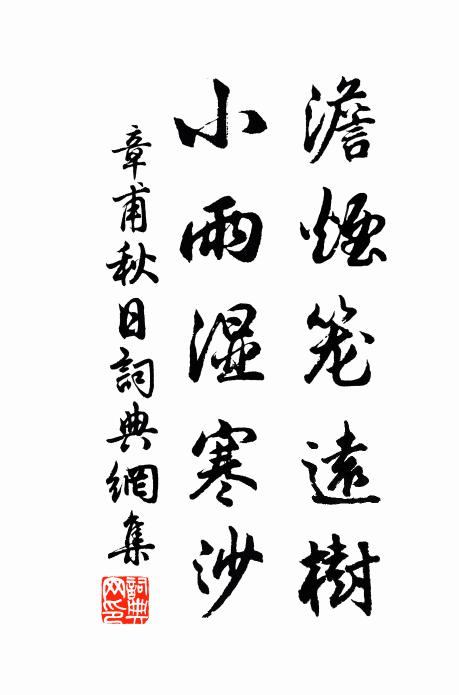 澹煙笼遠樹
小雨湿寒沙
章甫秋日詞典網集
詞典网印